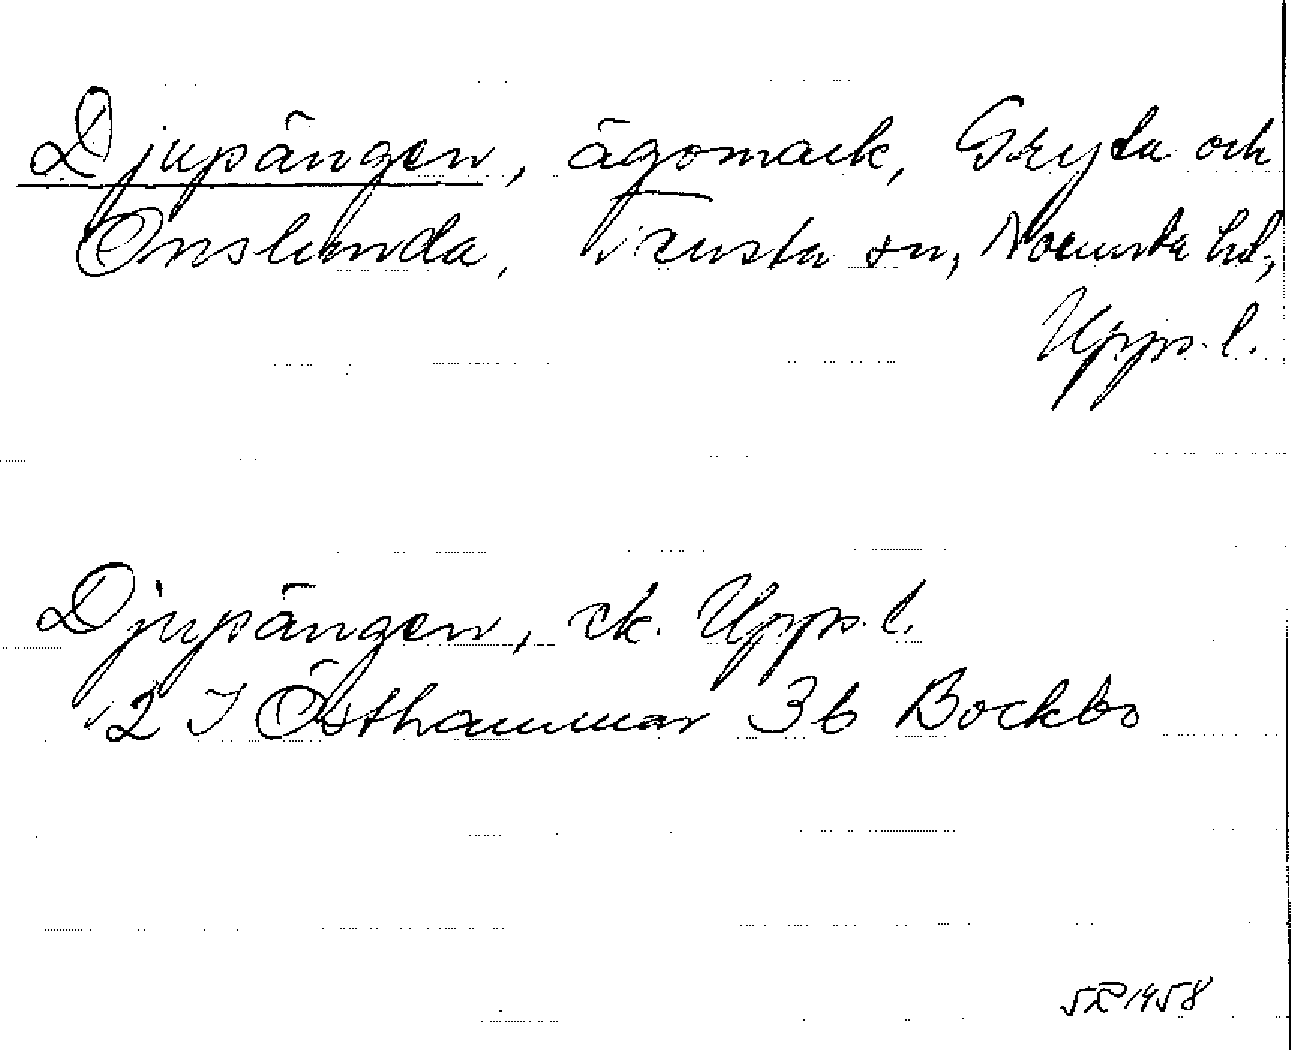 Djupängen, ägomark, Gryta och
Onslunda, Tensta sn, Norunda hd,
Upps. l.
Djupängen, ek. Upps. l.
12 I Östhammar 3b Bockbo
1958